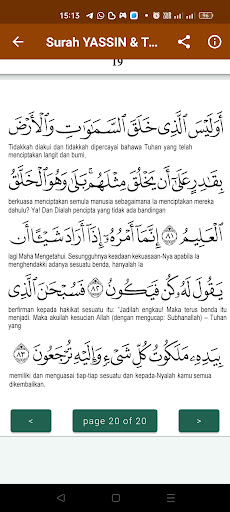 15:13
96
Surah YASSIN & T...
19
أَوَلَيْسَ ٱلَّذِى خَلَقَ ٱلسَّمَـٰوَٰتِ وَٱلْأَرْضَ
Tidakkah diakui dan tidakkah dipercayai bahawa Tuhan yang telah
menciptakan langit dan bumi,
بِقَـٰدِرٍ عَلَىٰٓ أَن يَخْلُقَ مِثْلَهُم ۚ بَلَىٰ وَهُوَ ٱلْخَلَّـٰقُ
berkuasa menciptakan semula manusia sebagaimana Ia menciptakan mereka
dahulu? Ya! Dan Dialah pencipta yang tidak ada bandingan
ٱلْعَلِيمُ ٨١ إِنَّمَآ أَمْرُهُۥٓ إِذَآ أَرَادَ شَيْـًٔا أَن
lagi Maha Mengetahui. Sesungguhnya keadaan kekuasaan-Nya apabila Ia
menghendakki adanya sesuatu benda, hanyalah Ia
يَقُولَ لَهُۥ كُن فَيَكُونُ ٨٢ فَسُبْحَـٰنَ ٱلَّذِى
berfirman kepada hakikat sesuatu itu: "Jadilah engkau! Maka terus benda itu
menjadi. Maka akuilah kesucian Allah (dengan mengucap: Subhanallah) – Tuhan
yang
بِيَدِهِۦ مَلَكُوتُ كُلِّ شَىْءٍ وَإِلَيْهِ تُرْجَعُونَ ٨٣
memiliki dan menguasai tiap-tiap sesuatu dan kepada-Nyalah kamu semua
dikembalikan.
< page 20 of 20 >